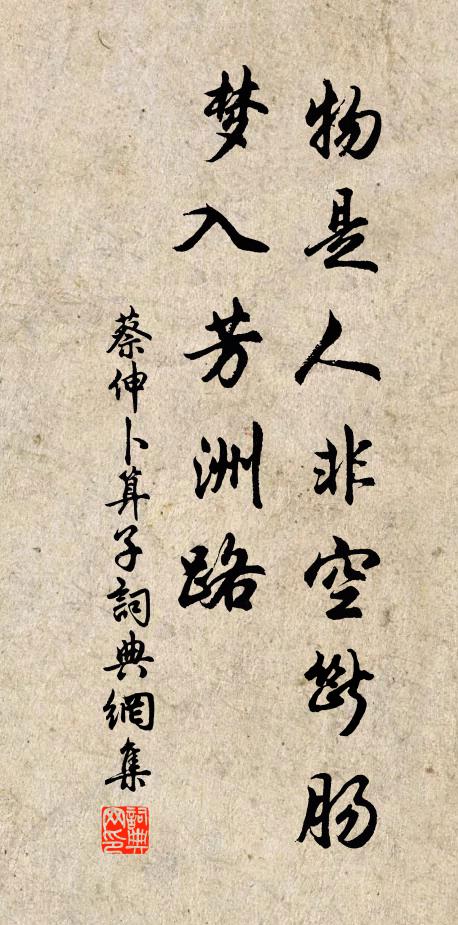 物是人非空断肠
梦入芳洲路
蔡伸卜算子詞典網集
詞典网印